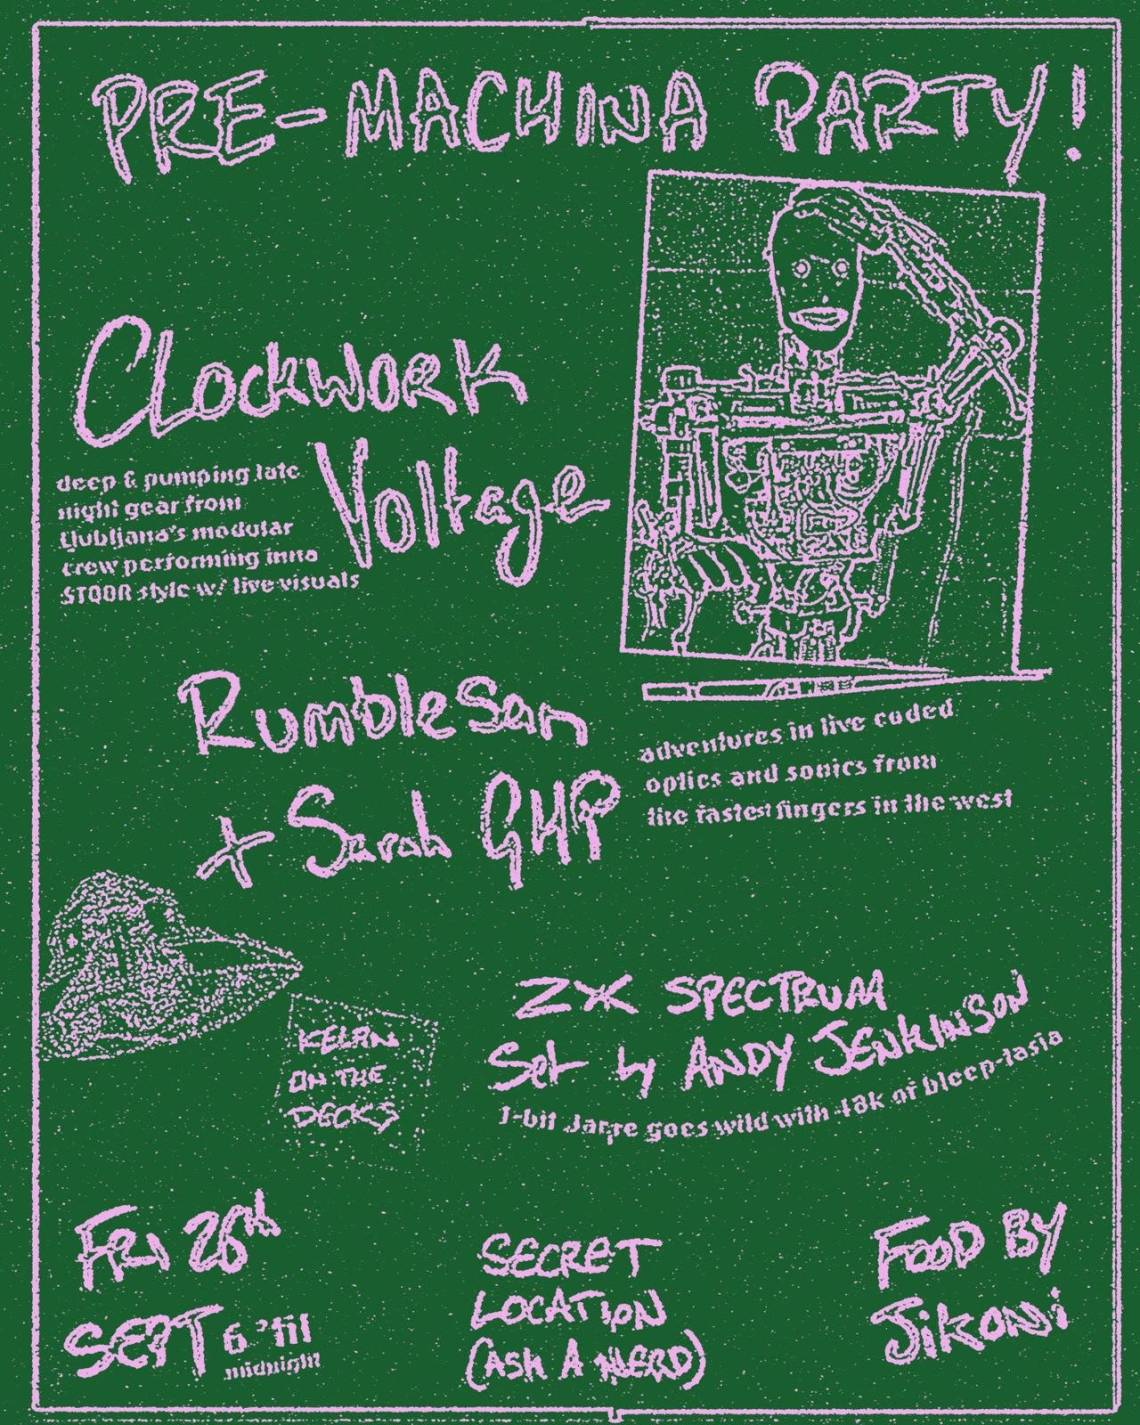 PRE-MACHINA PARTY!
CLockwork
Voltage
deep & pumping late
night gear from
Ljubljana's modular
crew performing inna
STOOR style w/ live visuals
RumbleSan
+ Sarah GHP
adventures in live coded
optics and sonics from
the fastest fingers in the west
KELAN
ON THE
DECKS
ZX SPECTRUM
Set by ANDY JENKINSON
1-bit Jarre goes wild with 48k of bleep-tasia
FRI 26th
SEPT 6 'til
midnight
SECRET
LOCATION
(ASK A NERD)
FOOD BY
Jikoni